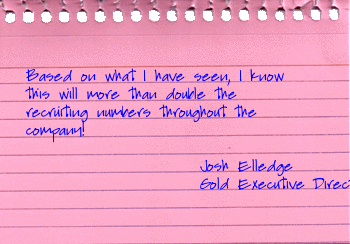 Based on what I have seen, I know
this will more than double the
recruiting numbers throughout the
company!
Josh Elledge
Gold Executive Direc